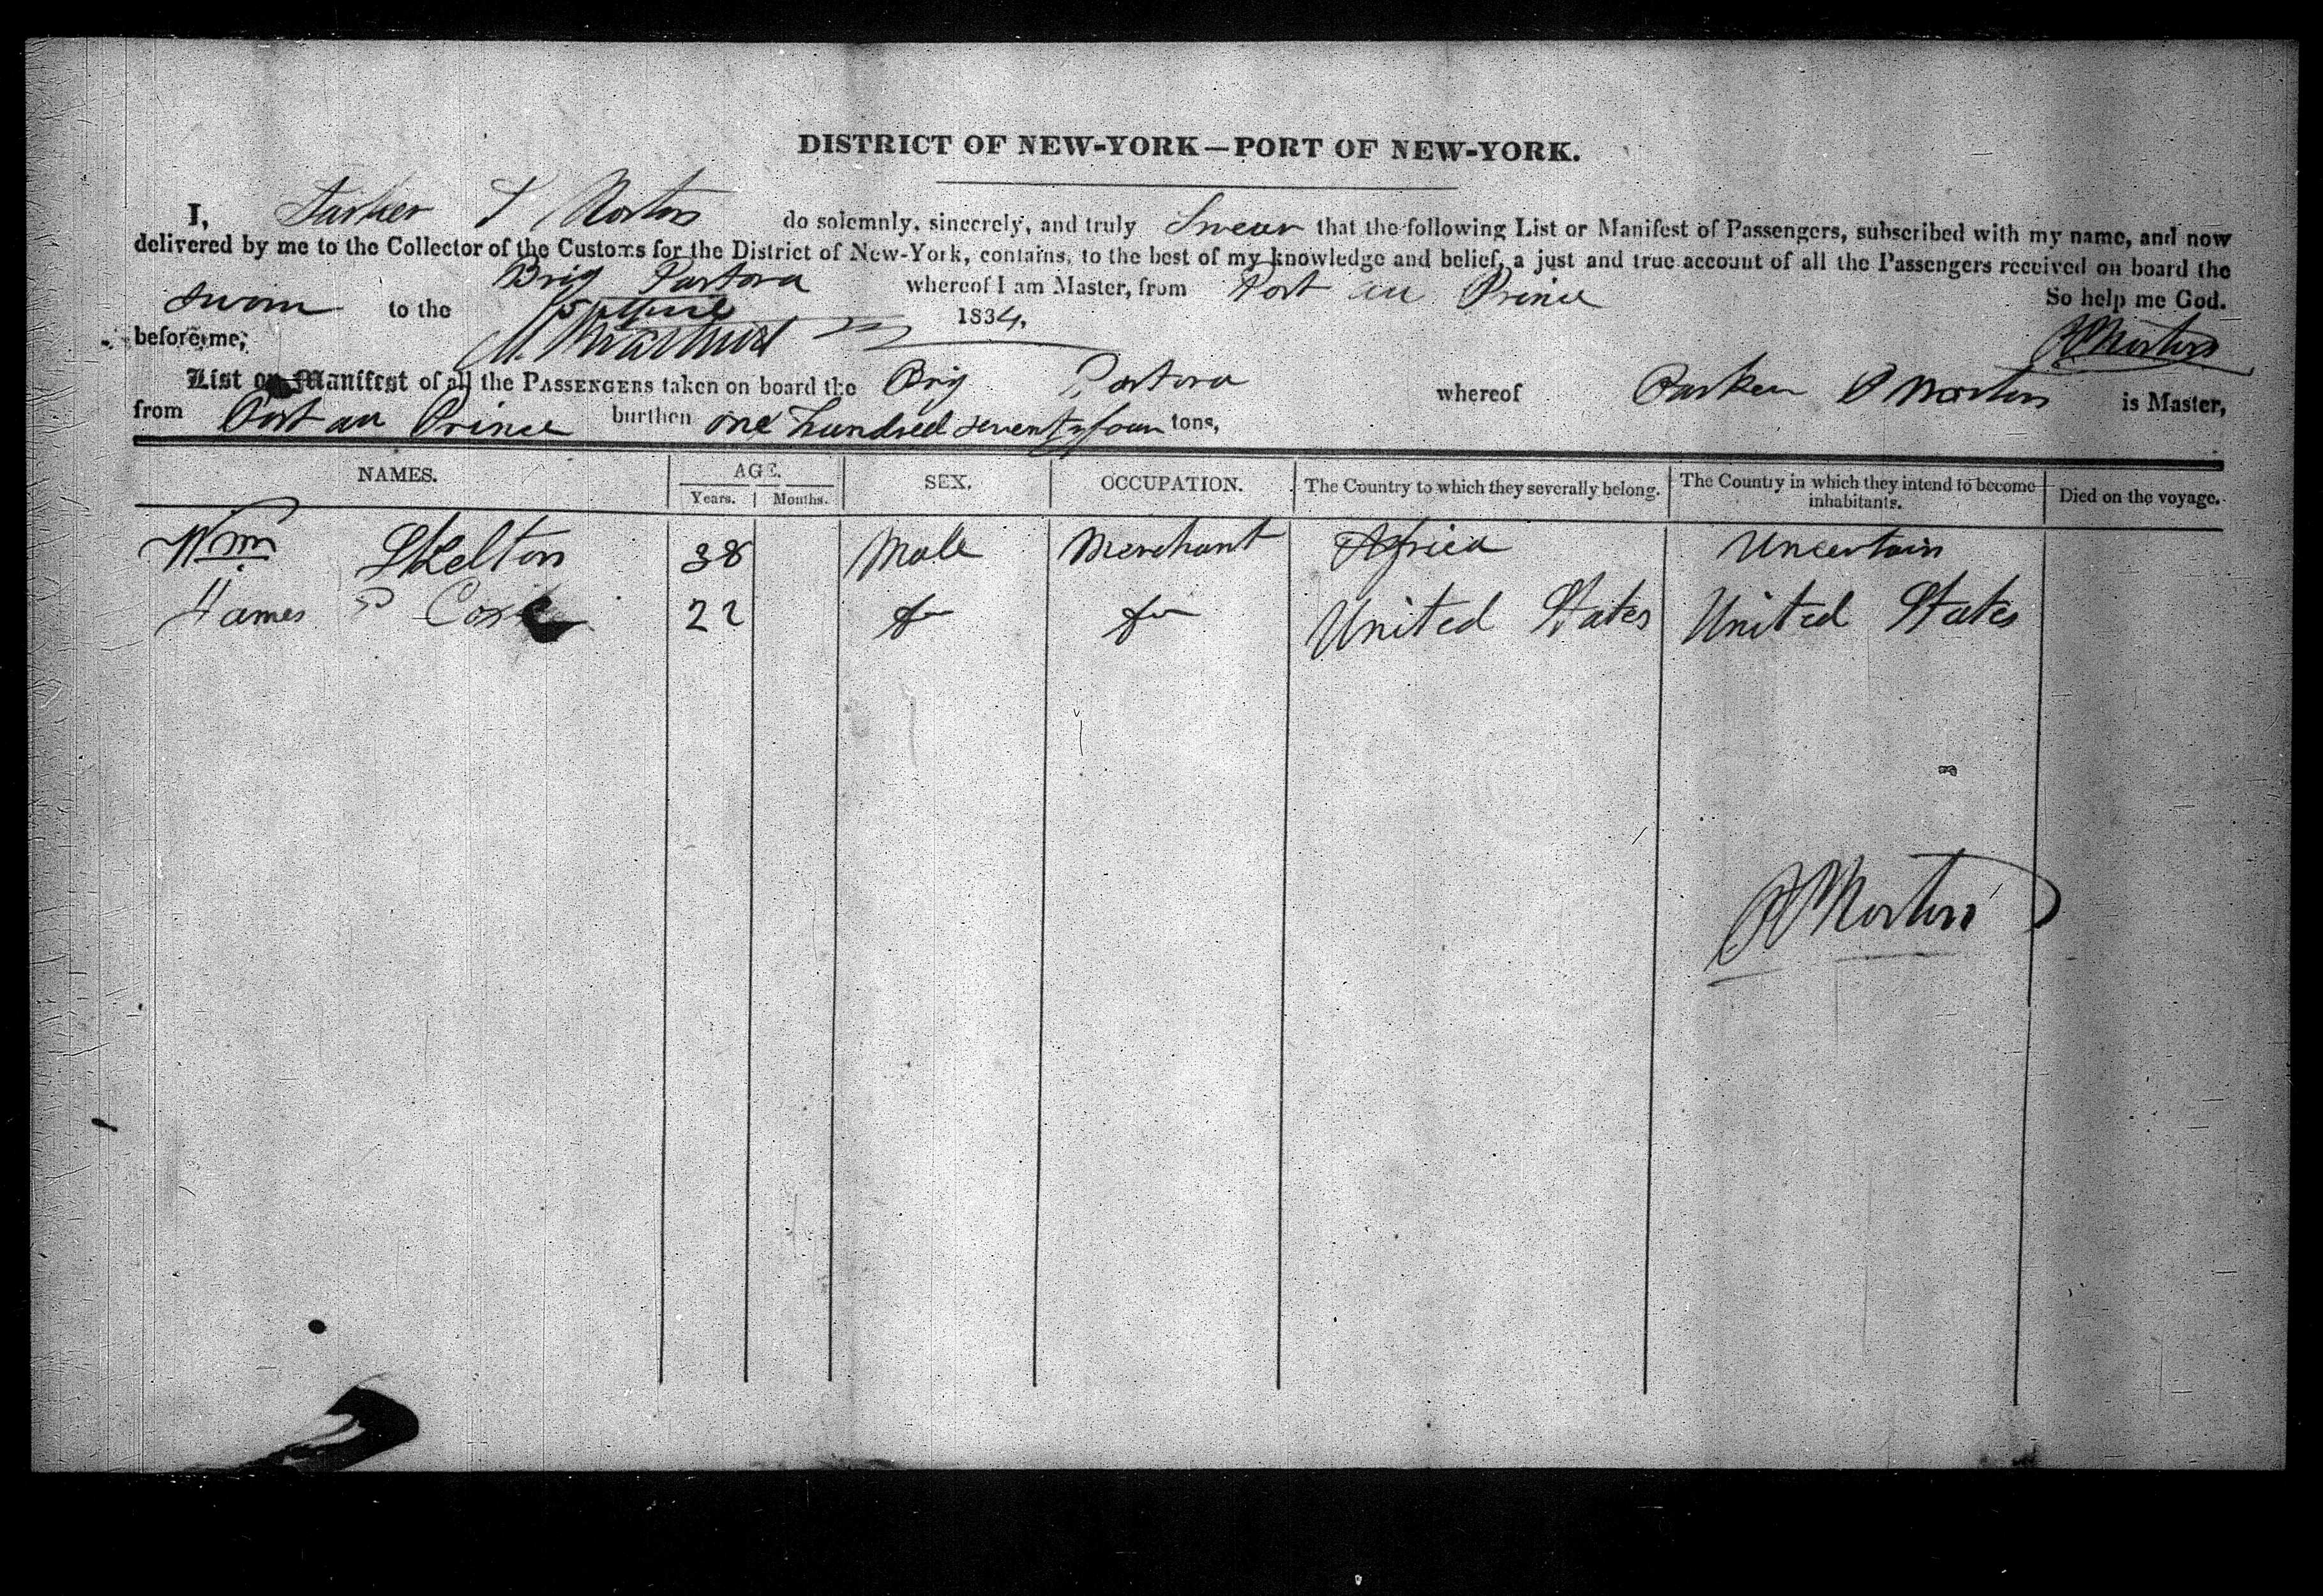 DISTRICT OF NEW-YORK—PORT OF NEW-YORK.
I, Parker P Norton do solemnly, sincerely, and truly Swear that the following List or Manifest of Passengers, subscribed with my name, and now
delivered by me to the Collector of the Customs for the District of New-York, contains, to the best of my knowledge and belief, a just and true account of all the Passengers received on board the
Brig Pastora whereof I am Master, from Port au Prince So help me God.
sworn to the 1834.
before me, P Norton
List or Manifest of all the PASSENGERS taken on board the Brig Pastora whereof Parker P Norton is Master,
from Port au Prince burthen one hundred seventy four tons,
NAMES. AGE. SEX. OCCUPATION. The Country to which they severally belong. The Country in which they intend to become inhabitants. Died on the voyage.
Years. Months.
Wm Skelton 38 Male Merchant Africa Uncertain
James P Cox 22 do do United States United States
P Norton